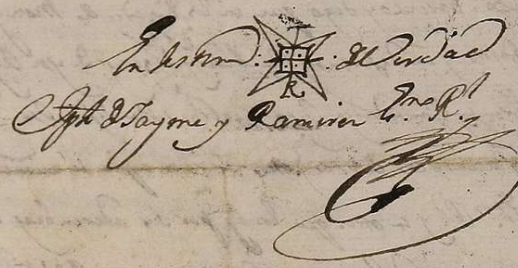 En testim.º : I R : d Verdad
Jph. d Jayme y Ramirez Es.no R.l